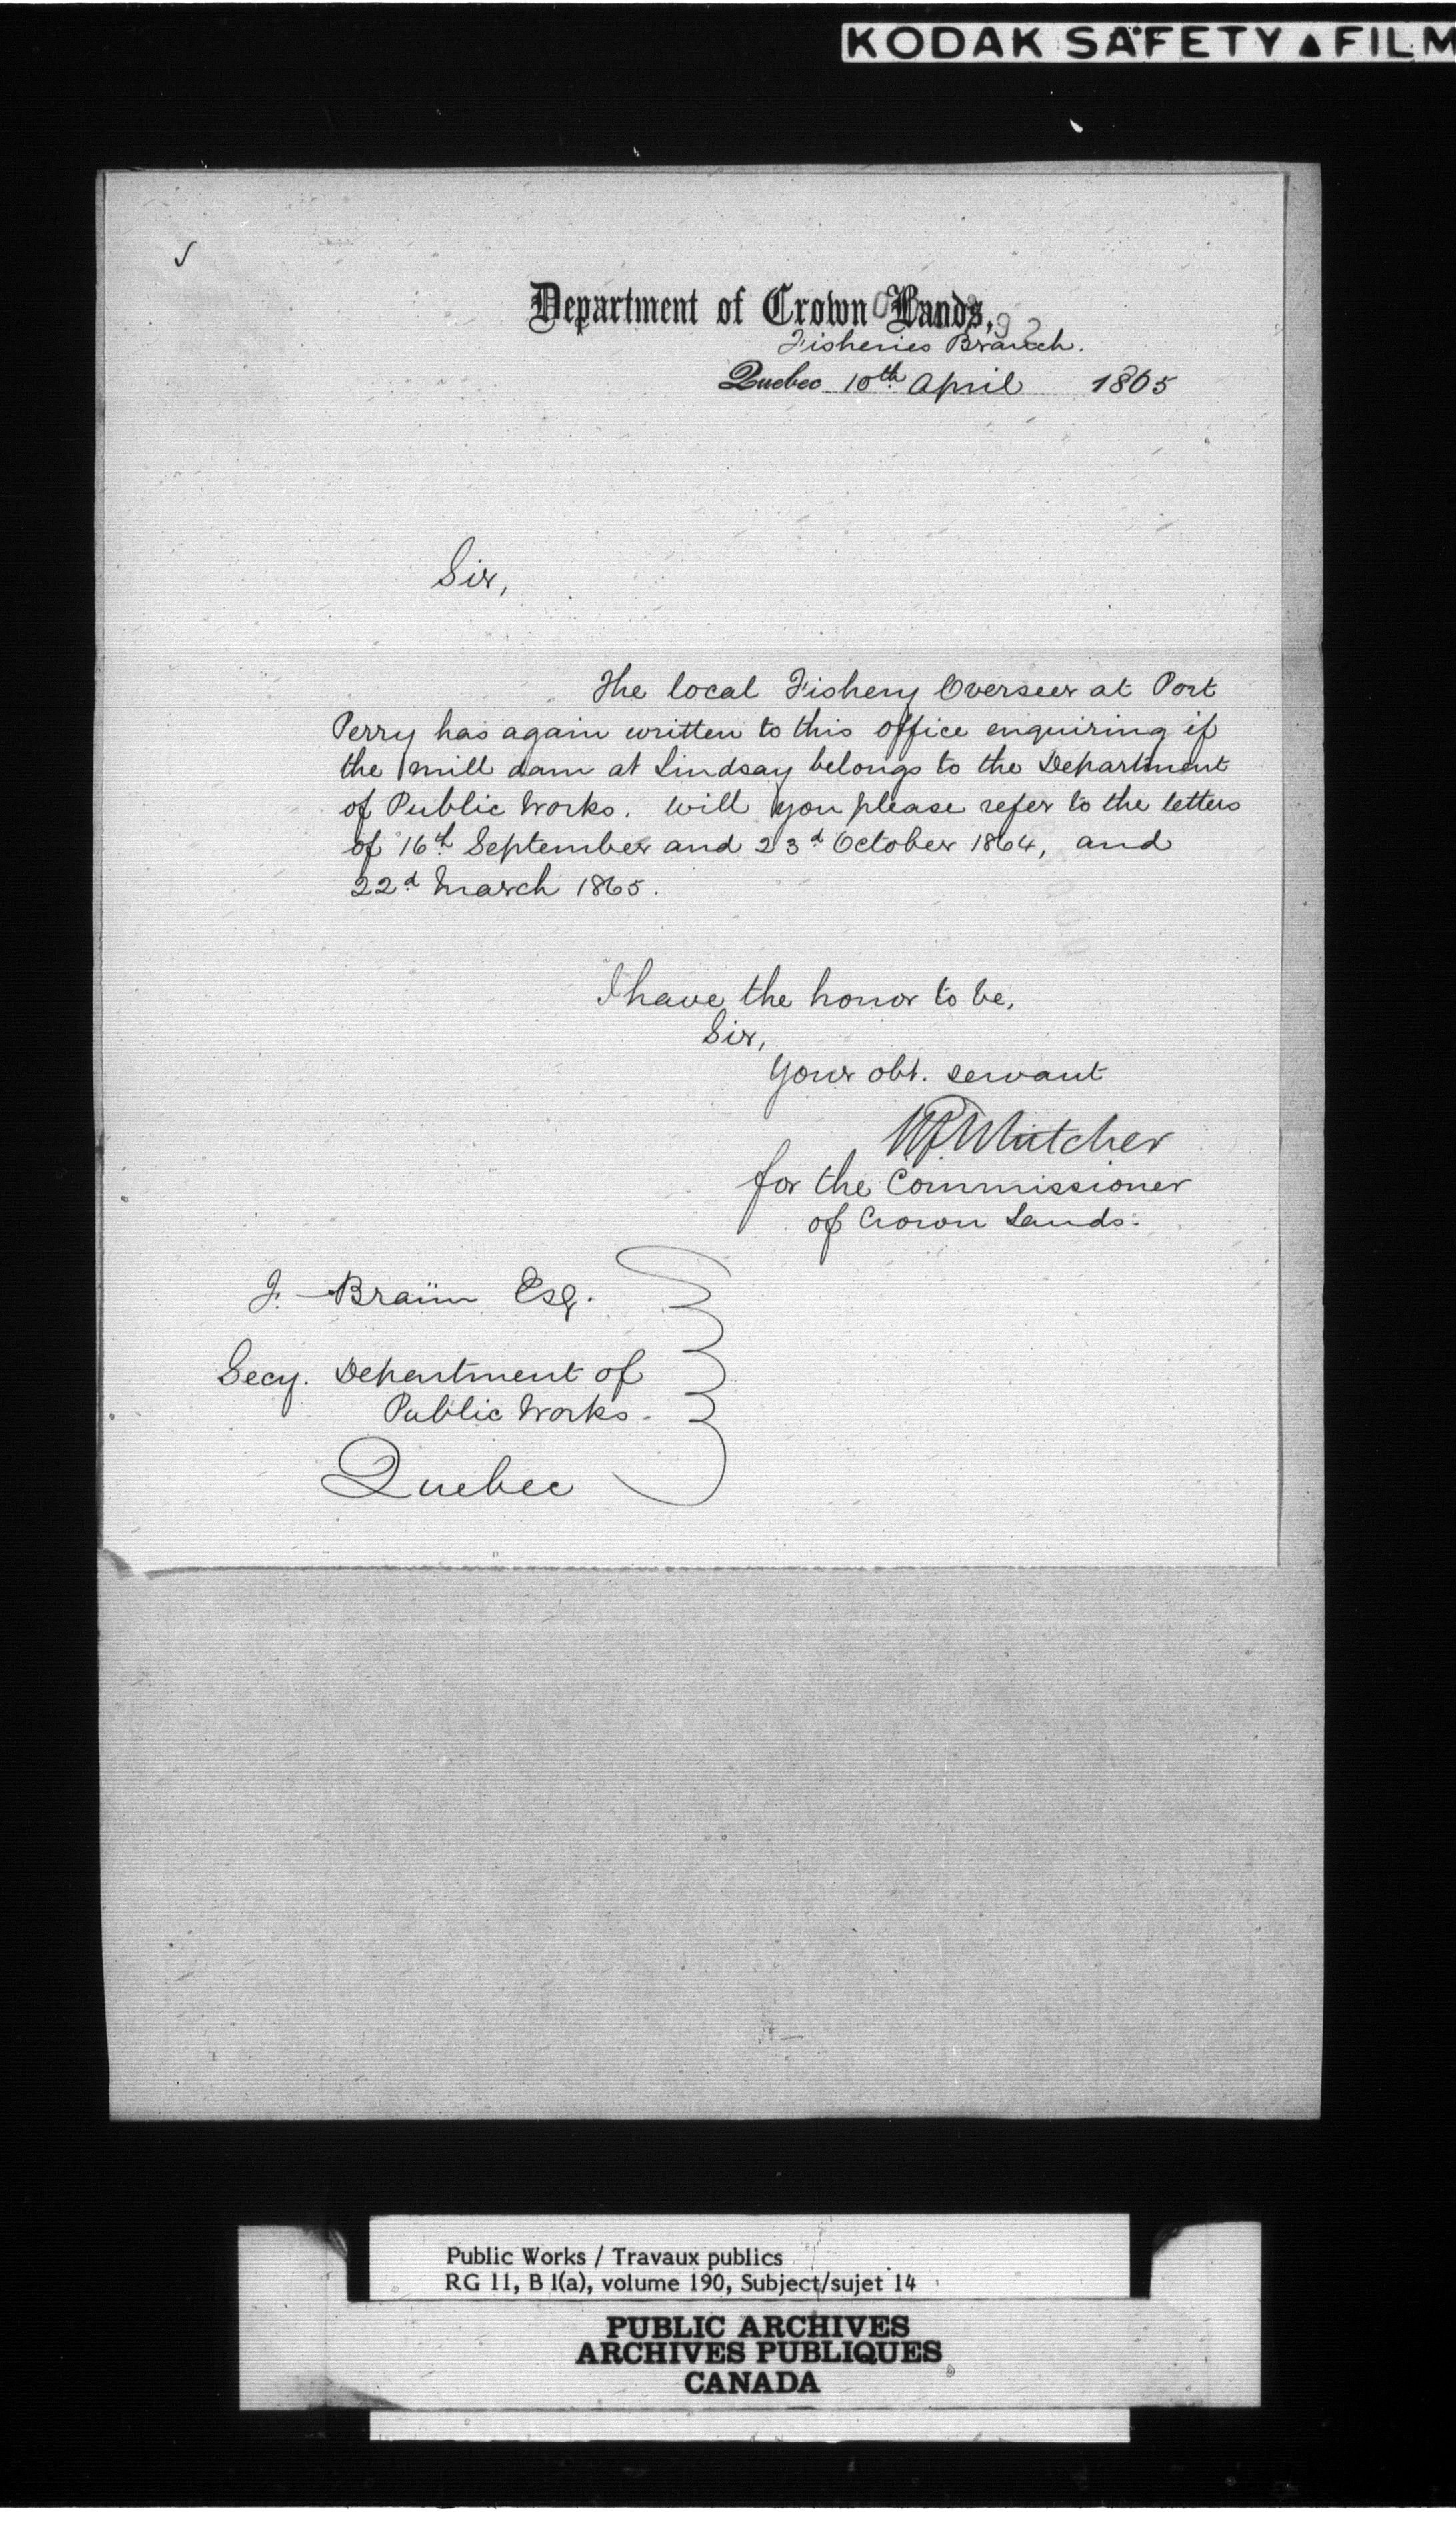 KODAK SAFETY ▲ FILM
Department of Crown Lands,
Fisheries Branch.
Quebec 10th April 1865
Sir,
The local Fishery Overseer at Port
Perry has again written to this office enquiring if
the mill dam at Lindsay belongs to the Department
of Public Works. Will you please refer to the letters
of 16th September and 23d October 1864, and
22d March 1865.
I have the honor to be,
Sir,
Your obt. servant
W.F. Whitcher
for the Commissioner
of Crown Lands.
F. Braün Esq.
Secy. Department of
Public Works.
Quebec
Public Works / Travaux publics
RG 11, B 1(a), volume 190, Subject/sujet 14
PUBLIC ARCHIVES
ARCHIVES PUBLIQUES
CANADA